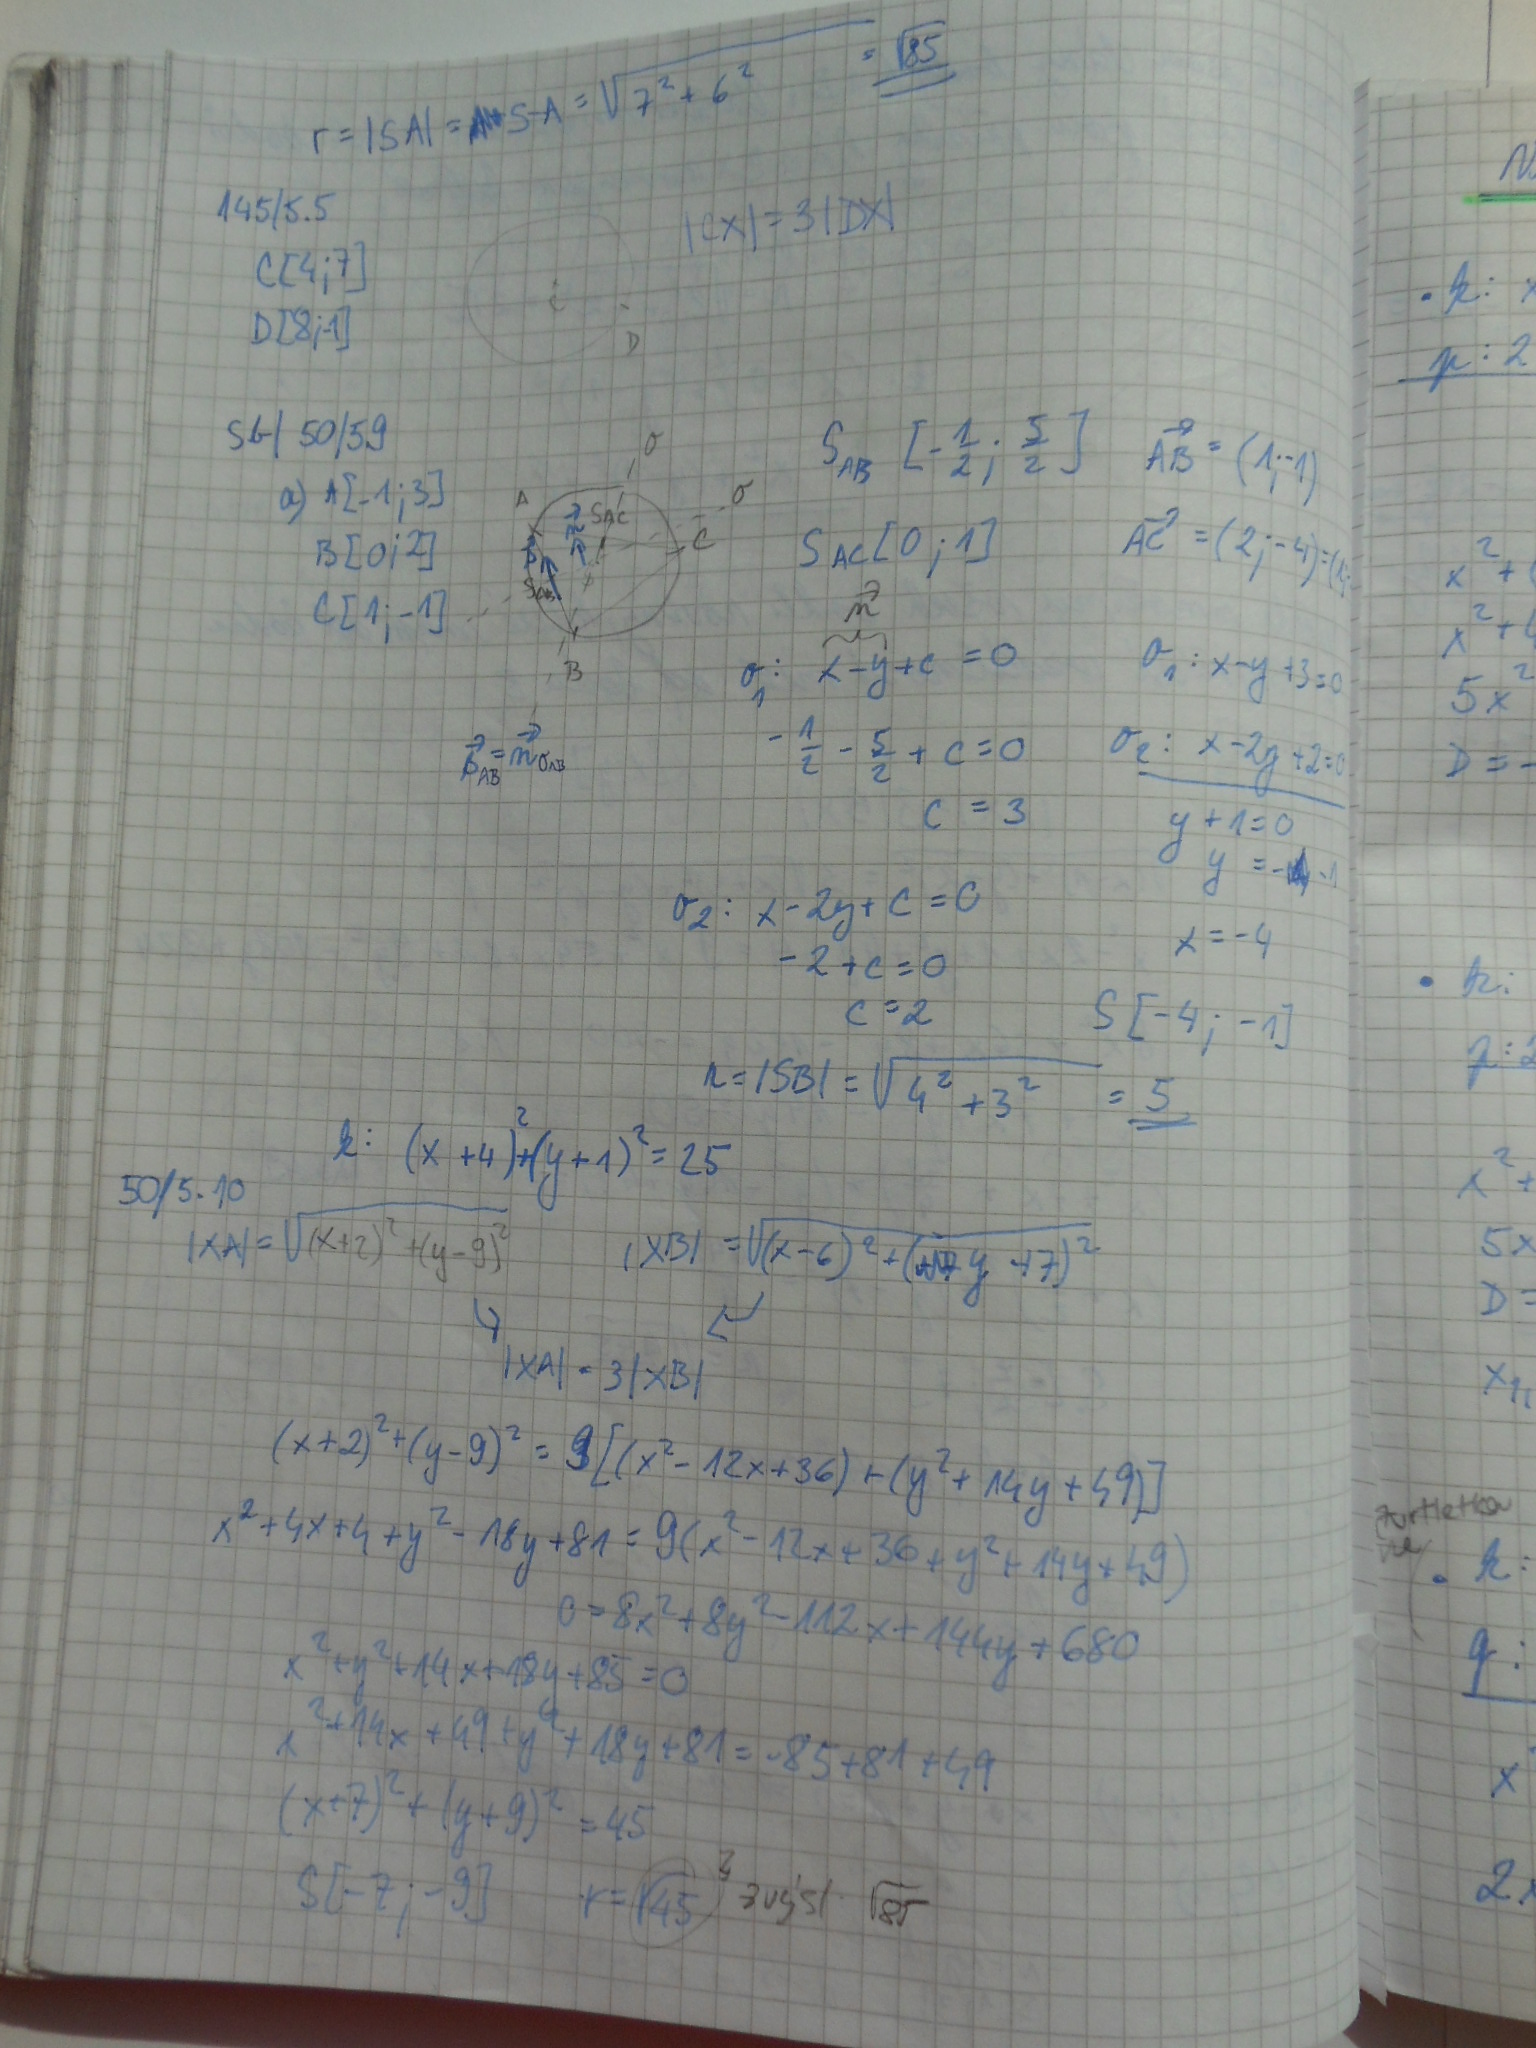 r = |SA| = S-A = √(7² + 6²) = √85
145/5.5
C[4;7]
D[8;-1]
|CX| = 3|DX|
C
D
Sb/ 50/59
a) A[-1;3]
B[0;2]
C[1;-1]
A
S_AC
σ
σ
C
n⃗
S_AB
B
s⃗_AB = n⃗_σAB
S_AB [-1/2; 5/2]
AB⃗ = (1;-1)
S_AC [0;1]
AC⃗ = (2;-4) = (1;
n⃗
σ₁: x-y+c = 0
-1/2 - 5/2 + c = 0
c = 3
σ₂: x-2y+c = 0
-2+c = 0
c = 2
σ₁: x-y+3=0
σ₂: x-2y+2=0
y+1=0
y = -1
x = -4
S[-4; -1]
r = |SB| = √(4² + 3²) = 5
k: (x+4)²+(y+1)² = 25
50/5.10
|XA| = √((x+2)²+(y-9)²)
|XB| = √((x-6)²+(y+7)²)
|XA| = 3|XB|
(x+2)²+(y-9)² = 9[(x²-12x+36)+(y²+14y+49)]
x²+4x+4+y²-18y+81 = 9(x²-12x+36+y²+14y+49)
0 = 8x²+8y²-112x+144y+680
x²+y²+14x+18y+85=0
x²+14x+49+y²+18y+81 = -85+81+49
(x+7)²+(y+9)² = 45
S[-7; -9]
r = √45 ? √85
• k: x
p: 2
x²+
x²+
5x²
D = -
• k:
p: 2
x²+
5x
D =
x₁,
• k:
q:
x²
2x